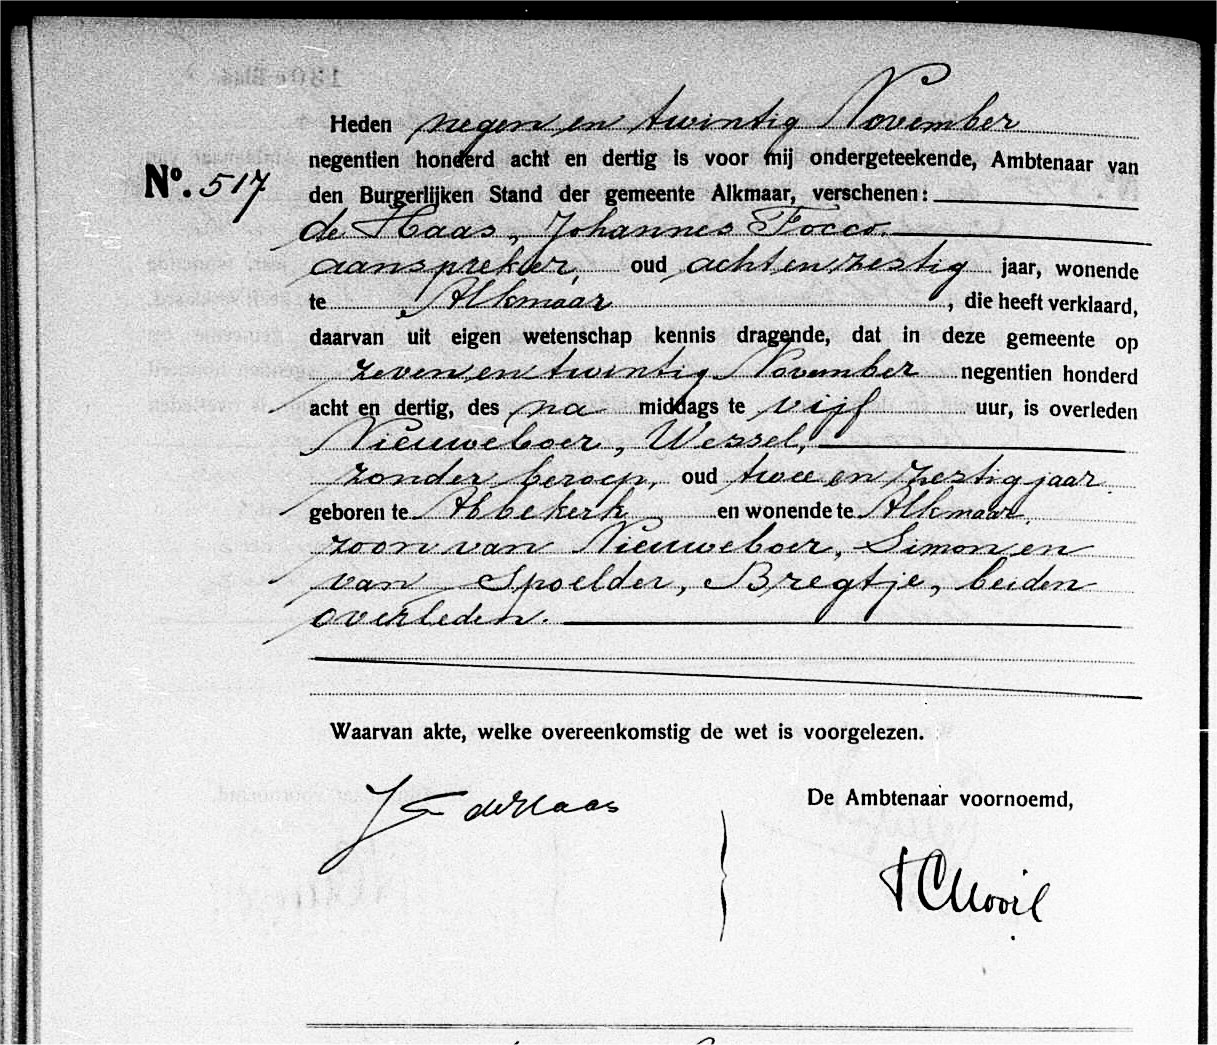 Heden negen en twintig November
negentien honderd acht en dertig is voor mij ondergeteekende, Ambtenaar van
No. 517 den Burgerlijken Stand der gemeente Alkmaar, verschenen:
de Haas, Johannes Focco.
aanspreker, oud achtenzestig jaar, wonende
te Alkmaar, die heeft verklaard,
daarvan uit eigen wetenschap kennis dragende, dat in deze gemeente op
zeven en twintig November negentien honderd
acht en dertig, des na middags te vijf uur, is overleden
Nieuweboer, Wessel,
zonder beroep, oud twee en zestig jaar.
geboren te Abbekerk en wonende te Alkmaar,
zoon van Nieuweboer, Simon en
van Spoelder, Bregtje, beiden
overleden.
Waarvan akte, welke overeenkomstig de wet is voorgelezen.
De Ambtenaar voornoemd,
J F de Haas